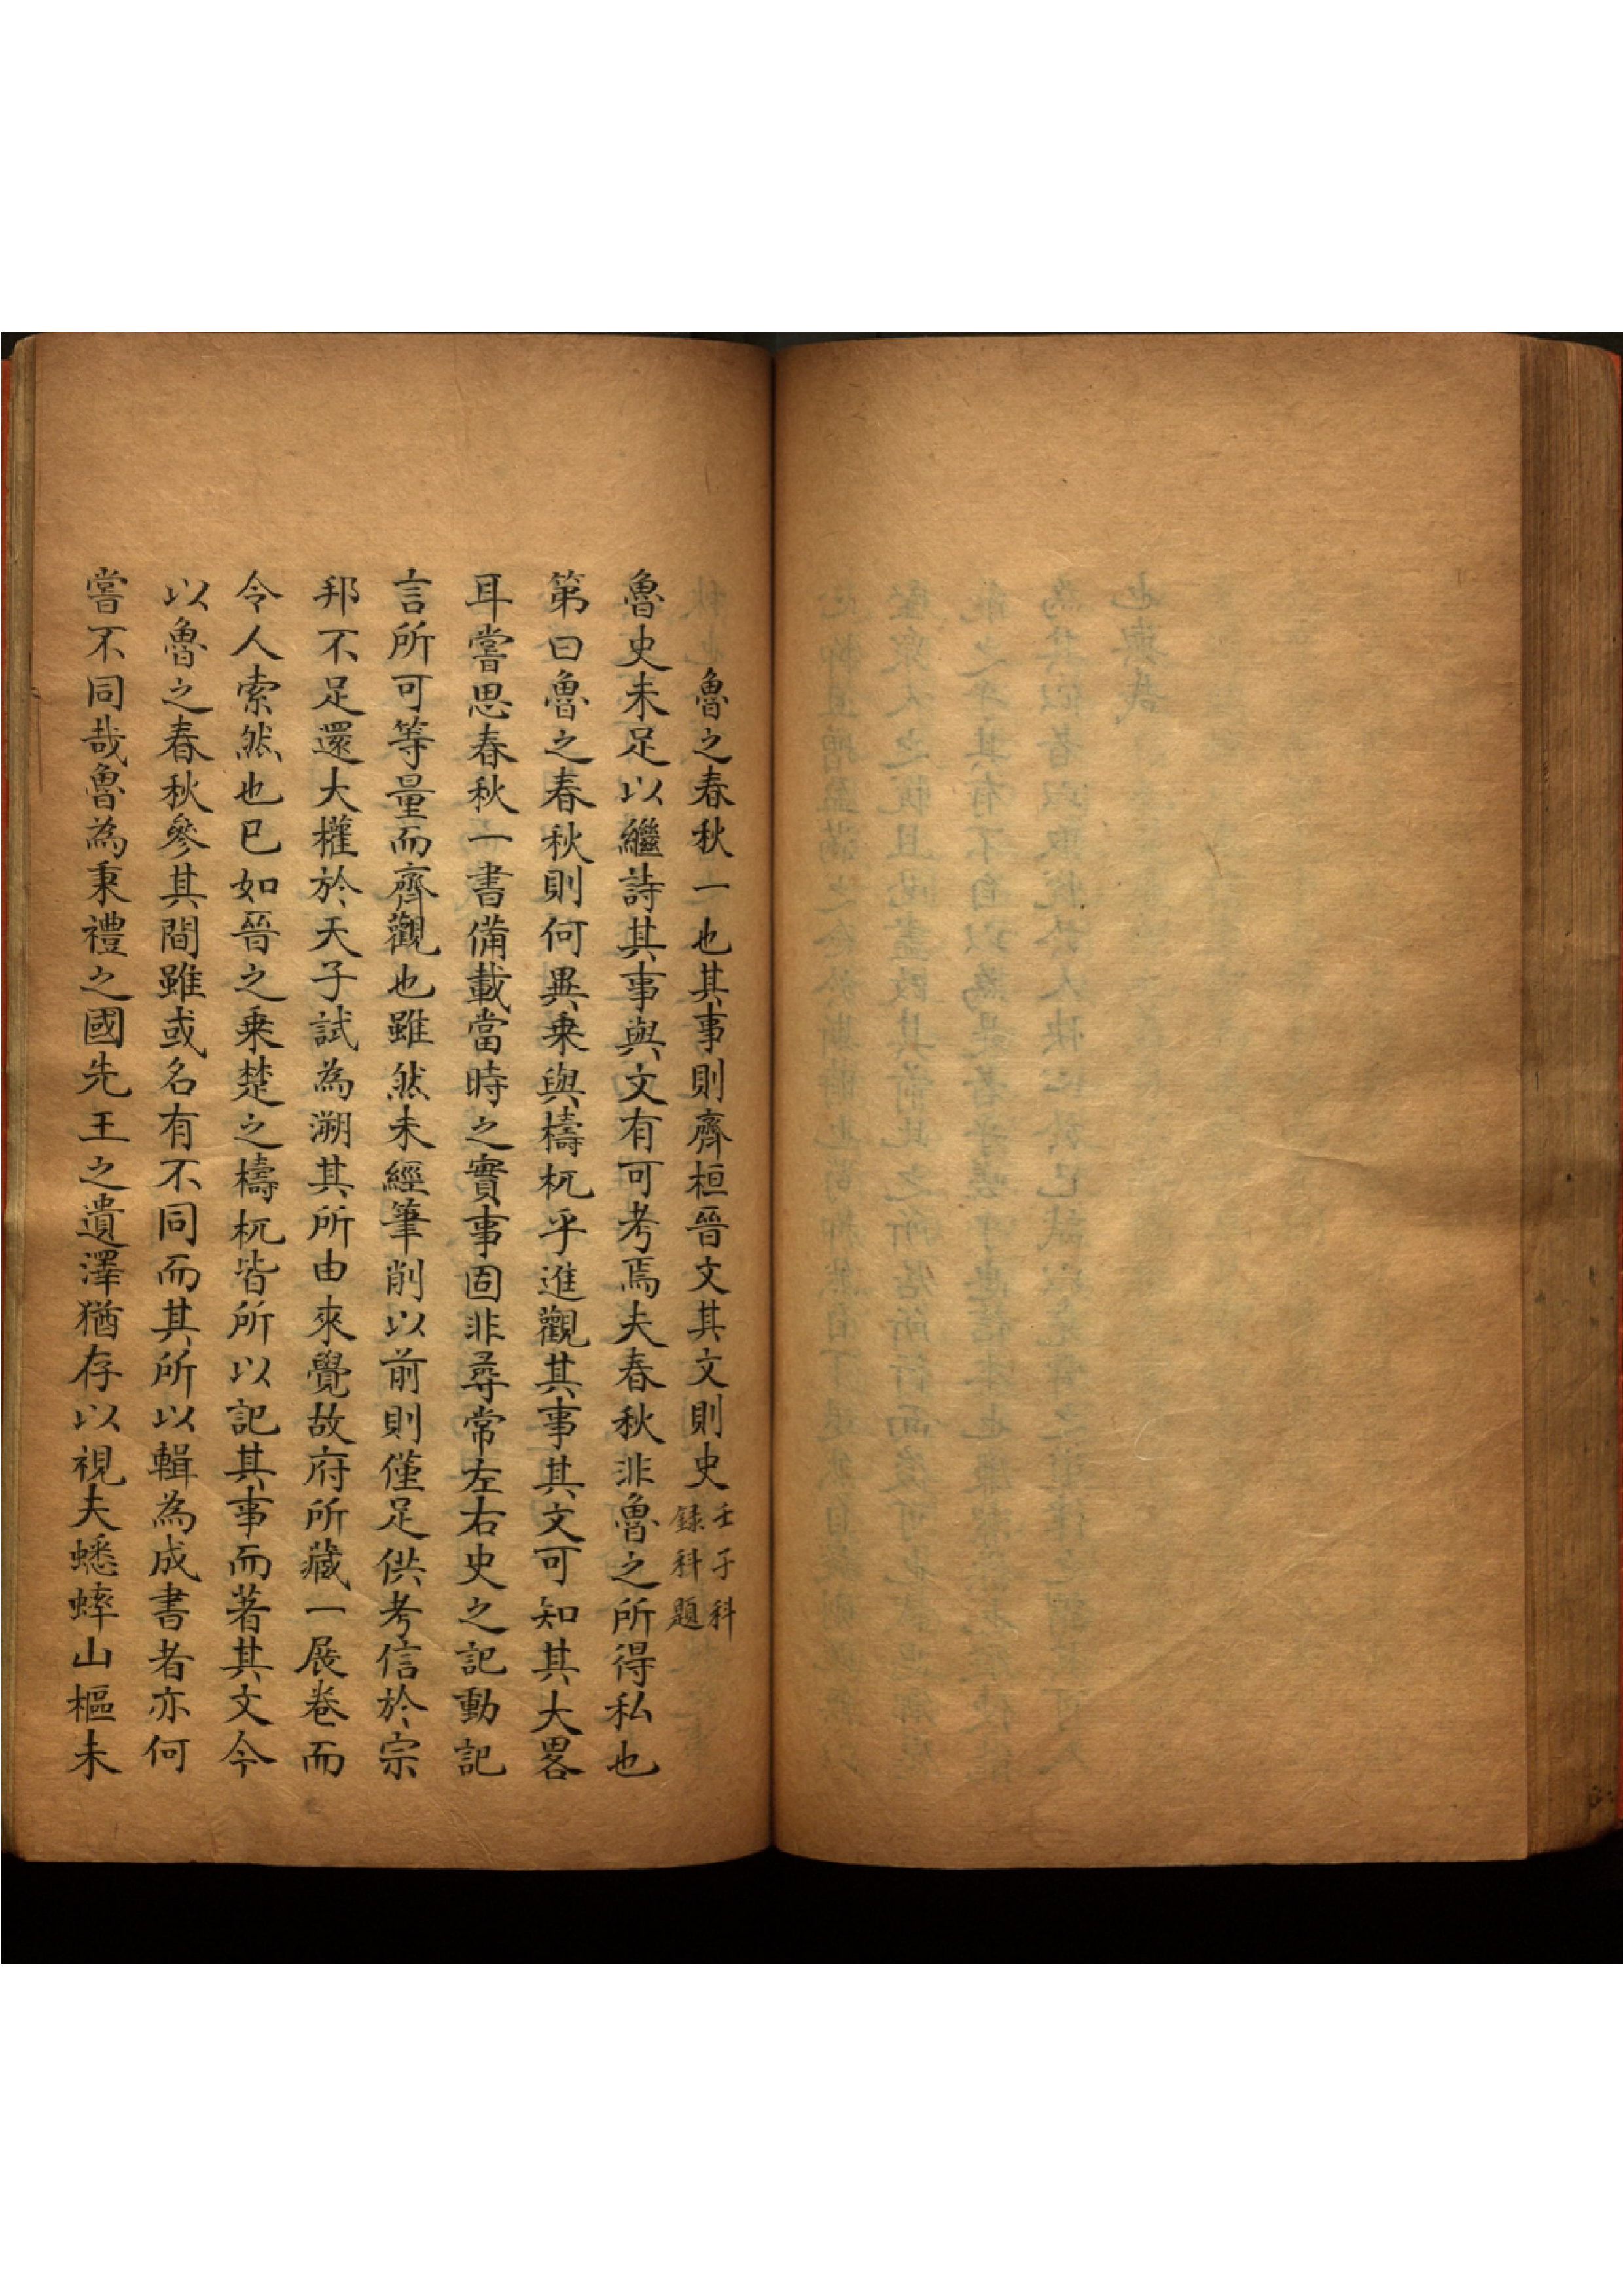 魯之春秋一也其事則齊桓晉文其文則史
壬子科
錄科題
魯史未足以繼詩其事與文有可考焉夫春秋非魯之所得私也
第曰魯之春秋則何異乗與檮杌乎進觀其事其文可知其大畧
耳嘗思春秋一書備載當時之實事固非尋常左右史之記動記
言所可等量而齊觀也雖然未經筆削以前則僅足供考信於宗
邦不足還大權於天子試為溯其所由來覺故府所藏一展卷而
令人索然也已如晉之乗楚之檮杌皆所以記其事而著其文今
以魯之春秋參其間雖或名有不同而其所以輯為成書者亦何
嘗不同哉魯為秉禮之國先王之遺澤猶存以視夫蟋蟀山樞未